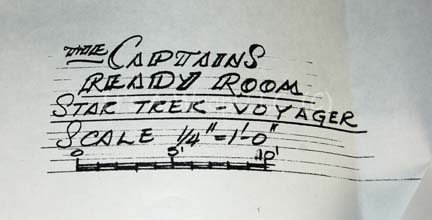 THE CAPTAINS
READY ROOM
STAR TREK - VOYAGER
SCALE 1/4" = 1'-0"
0 5' 10'